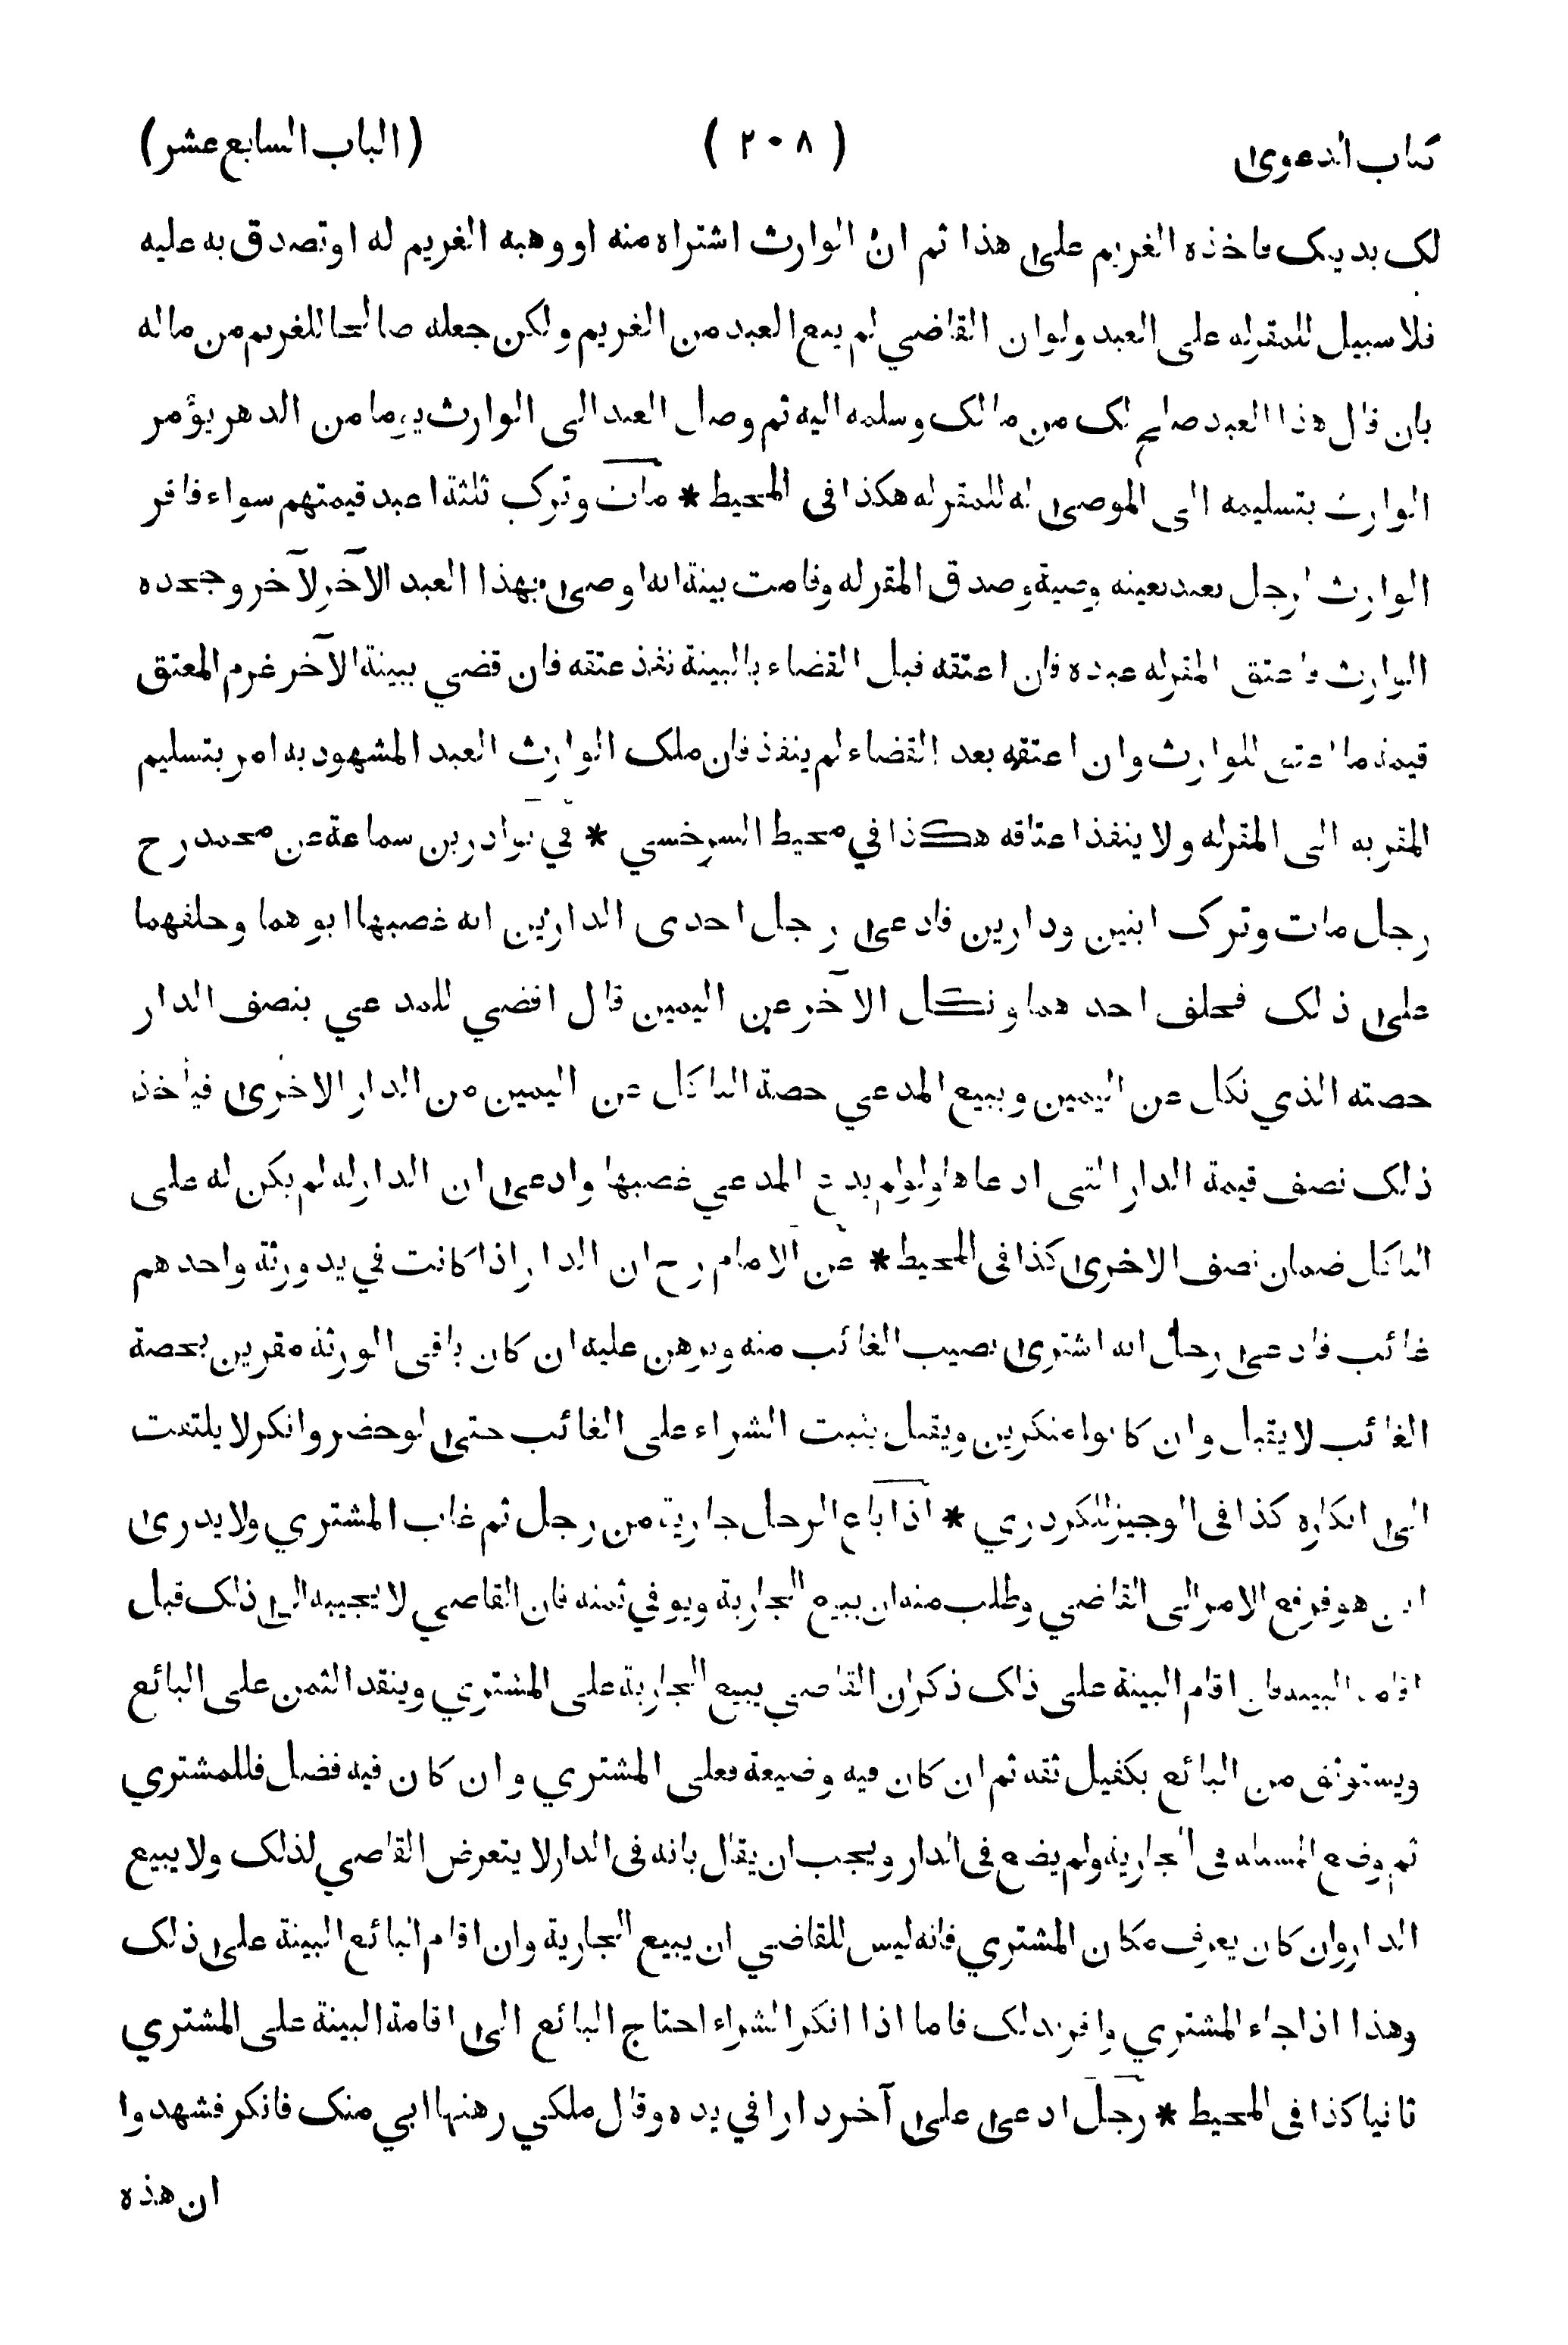 كتاب الدعوى ( ٢٠٨ ) ( الباب السابع عشر )
لك بدينك فاخذه الغريم على هذا ثم ان الوارث اشتراه منه او وهبه الغريم له اوتصدق به عليه
فلا سبيل للمقرله على العبد ولو ان القاضي لم يبع العبد من الغريم ولكن جعله صالحا للغريم من ماله
بان قال هذا العبد صلح لك من مالك وسلمه اليه ثم وصل العبد الى الوارث يوما من الدهر يؤمر
الوارث بتسليمه الى الموصى له للمقرله هكذا فى المحيط * مات وترك ثلثة اعبد قيمتهم سواء فاقر
الوارث لرجل بعبد بعينه وصية وصدق المقرله وقامت بينة انه اوصى بهذا العبد الآخر لآخر وجحده
الوارث فاعتق المقرله عبده فان اعتقه قبل القضاء بالبينة نفذ عتقه فان قضي ببينة الآخر غرم المعتق
قيمة ما اعتق للوارث وان اعتقه بعد القضاء لم ينفذ فان ملك الوارث العبد المشهود به امر بتسليم
المقر به الى المقرله ولا ينفذ اعتاقه هكذا في محيط السرخسي * في نوادر بن سماعة عن محمد رح
رجل مات وترك ابنين ودارين فادعى رجل احدى الدارين انه غصبها ابوهما وحلفهما
على ذلك فحلف احدهما ونكل الآخر عن اليمين قال اقضي للمدعي بنصف الدار
حصته الذي نكل عن اليمين ويبيع المدعي حصة الناكل عن اليمين من الدار الاخرى فيأخذ
ذلك نصف قيمة الدار التى ادعاها ولو لم يدع المدعي غصبها وادعى ان الدار له لم يكن له على
الناكل ضمان نصف الاخرى كذا فى المحيط * عن الامام رح ان الدار اذا كانت في يد ورثة واحدهم
غائب فادعى رجل انه اشترى نصيب الغائب منه وبرهن عليه ان كان باقى الورثة مقرين بحصة
الغائب لا يقبل وان كانوا منكرين ويقبل يثبت الشراء على الغائب حتى لوحضر وانكر لا يلتفت
الى انكاره كذا فى الوجيز للكردري * اذا باع الرجل جارية من رجل ثم غاب المشتري ولا يدرى
اين هو فرفع الامر الى القاضي وطلب منه ان يبيع الجارية ويوفي ثمنه فان القاضي لا يجيبه الى ذلك قبل
اقامة البينة فان اقام البينة على ذلك ذكر ان القاضي يبيع الجارية على المشتري وينقد الثمن على البائع
ويستوثق من البائع بكفيل ثقة ثم ان كان فيه وضيعة فعلى المشتري وان كان فيه فضل فللمشتري
ثم وضع المسئلة فى الجارية ولم يضع فى الدار ويجب ان يقال بانه فى الدار لا يتعرض القاضي لذلك ولا يبيع
الدار وان كان يعرف مكان المشتري فانه ليس للقاضي ان يبيع الجارية وان اقام البائع البينة على ذلك
وهذا اذا جاء المشتري واقر بذلك فاما اذا انكر الشراء احتاج البائع الى اقامة البينة على المشتري
ثانيا كذا فى المحيط * رجل ادعى على آخر دارا في يده وقال ملكي رهنها ابي منك فانكر فشهدوا
ان هذه